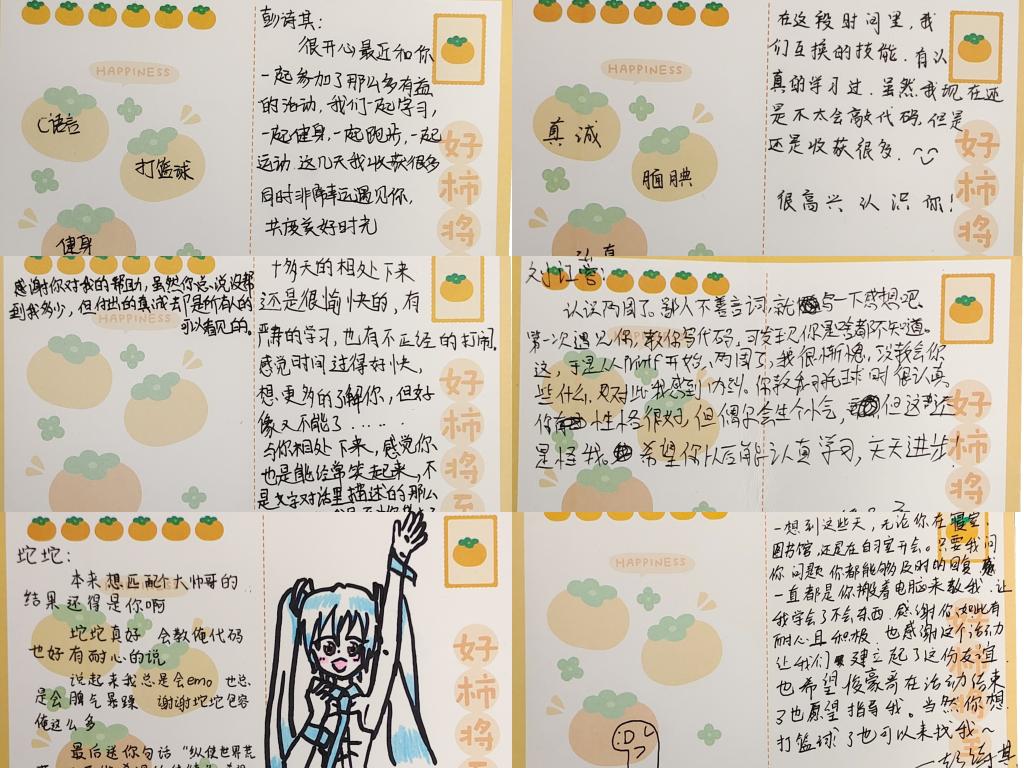 HAPPINESS
C语言
打篮球
健身
彭诗其:
很开心最近和你
一起参加了那么多有益
的活动,我们一起学习,
一起健身,一起跑步,一起
运动.这几天我收获很多
同时非常幸运遇见你,
共度美好时光
好
柿
将
HAPPINESS
真诚
腼腆
在这段时间里,我
们互换的技能.有认
真的学习过.虽然我现在还
是不太会敲代码.但是
还是收获很多.
很高兴认识你!
好
柿
将
感谢你对我的帮助,虽然你总说没帮
到我多少,但付出的真诚却是所有人的
可以看见的。
HAPPINESS
十多天的相处下来
还是很愉快的,有
严肃的学习,也有不正经的打闹.
感觉时间过得好快,
想更多的了解你,但好
像又不能了......
与你相处下来,感觉你
也是能经常笑起来,不
是文字对话里描述的那么
好
柿
将
至
认识两周了,鄙人不善言词,就写一下感想吧。
第一次遇见你,教你写代码,可发现你是啥都不知道。
这,于是从printf开始,两周了,我很惭愧,没教会你
些什么,对此我感到内疚。你教我羽毛球时很认真
你性格很好,但偶尔会生个小气,但这还
是怪我。希望你以后能认真学习,天天进步!
好
柿
将
坨坨:
本来想匹配个大帅哥的
结果还得是你啊
坨坨真好 会教俺代码
也好有耐心的说
说起来我总是会emo 也总
是会脾气暴躁 谢谢坨坨包容
俺这么多
最后送你句话 “纵使世界荒
好
柿
将
HAPPINESS
一想到这些天,无论你在寝室.
图书馆,还是在自习室开会。只要我问
你问题你都能够及时的回复.
一直都是你搬着电脑来教我.让
我学会了不会东西.感谢你如此有
耐心且积极.也感谢这个活动
让我们建立起了这份友谊.
也希望俊豪哥在活动结束
了也愿望指导我。当然你想
打篮球了也可以来找我~
—彭诗其